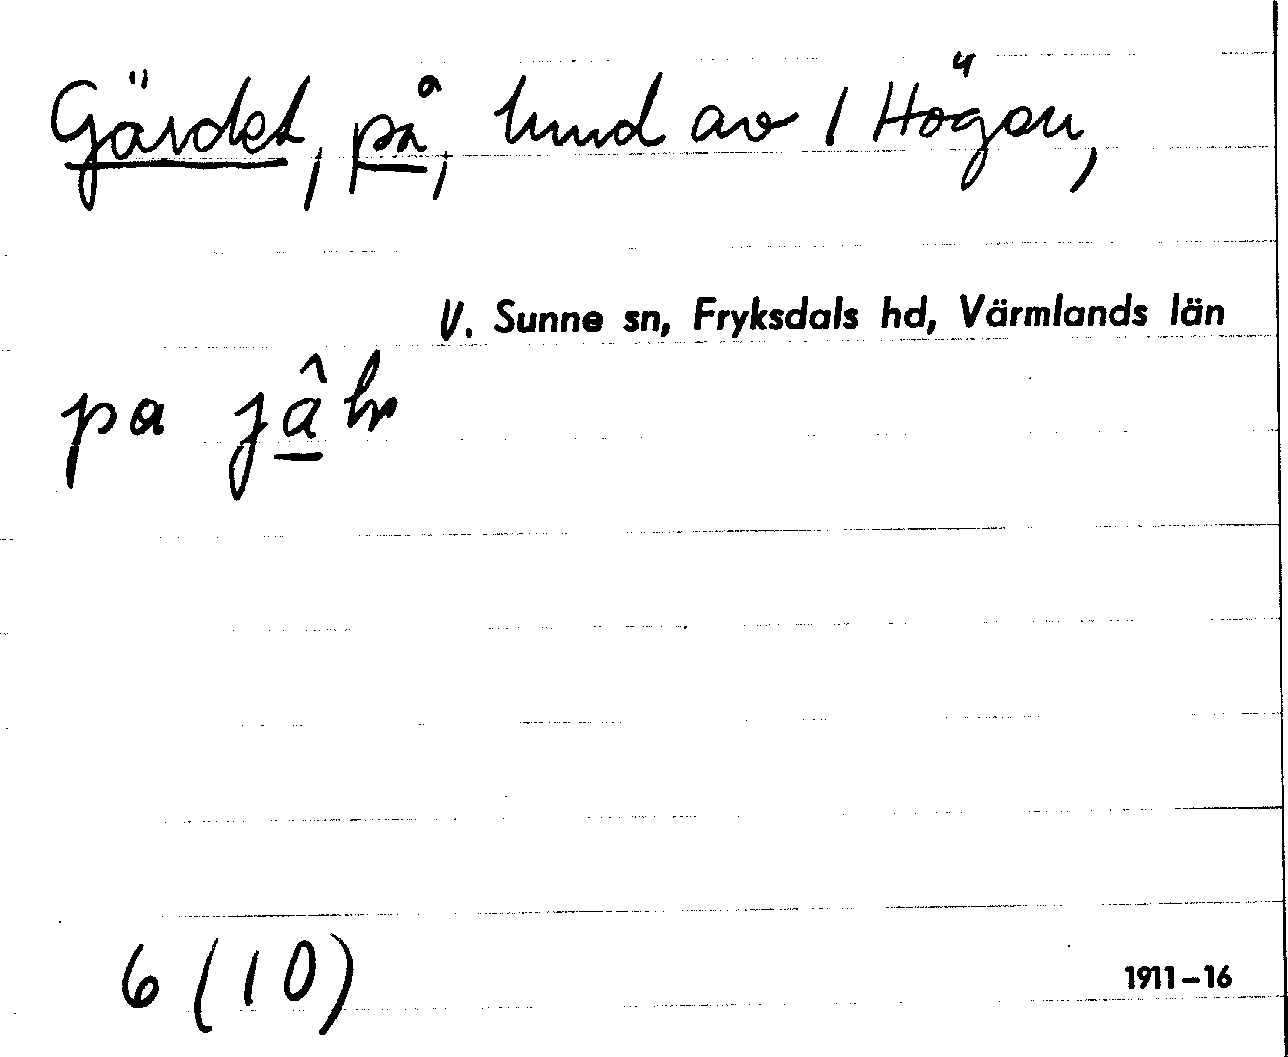 Gärdet, på, hmd av 1 Högen,
V. Sunne sn, Fryksdals hd, Värmlands län
pa jâ̱ln
6 (10)
1911–16